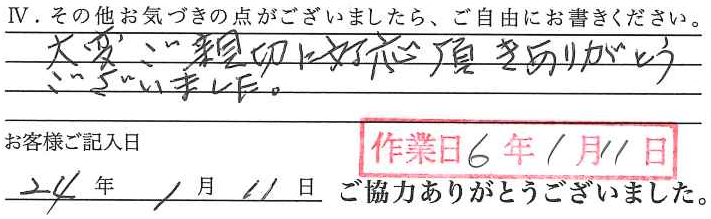 Ⅳ．その他お気づきの点がございましたら、ご自由にお書きください。
大変ご親切に対応頂きありがとう
ございました。
お客様ご記入日
作業日6年1月11日
24年1月11日
ご協力ありがとうございました。